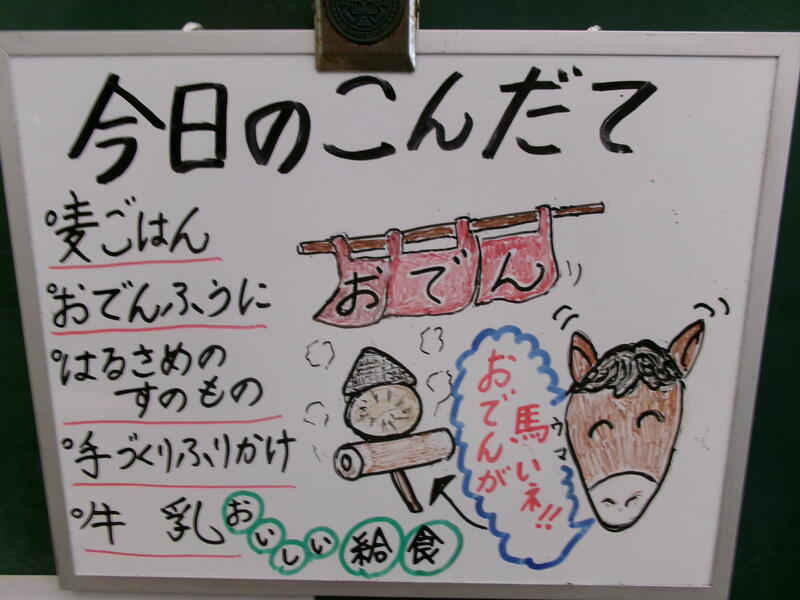 今日のこんだて
麦ごはん
おでんふうに
はるさめの
すのもの
手づくりふりかけ
牛乳
おでん
おでんが
馬いネ!!
ウマ
おいしい給食